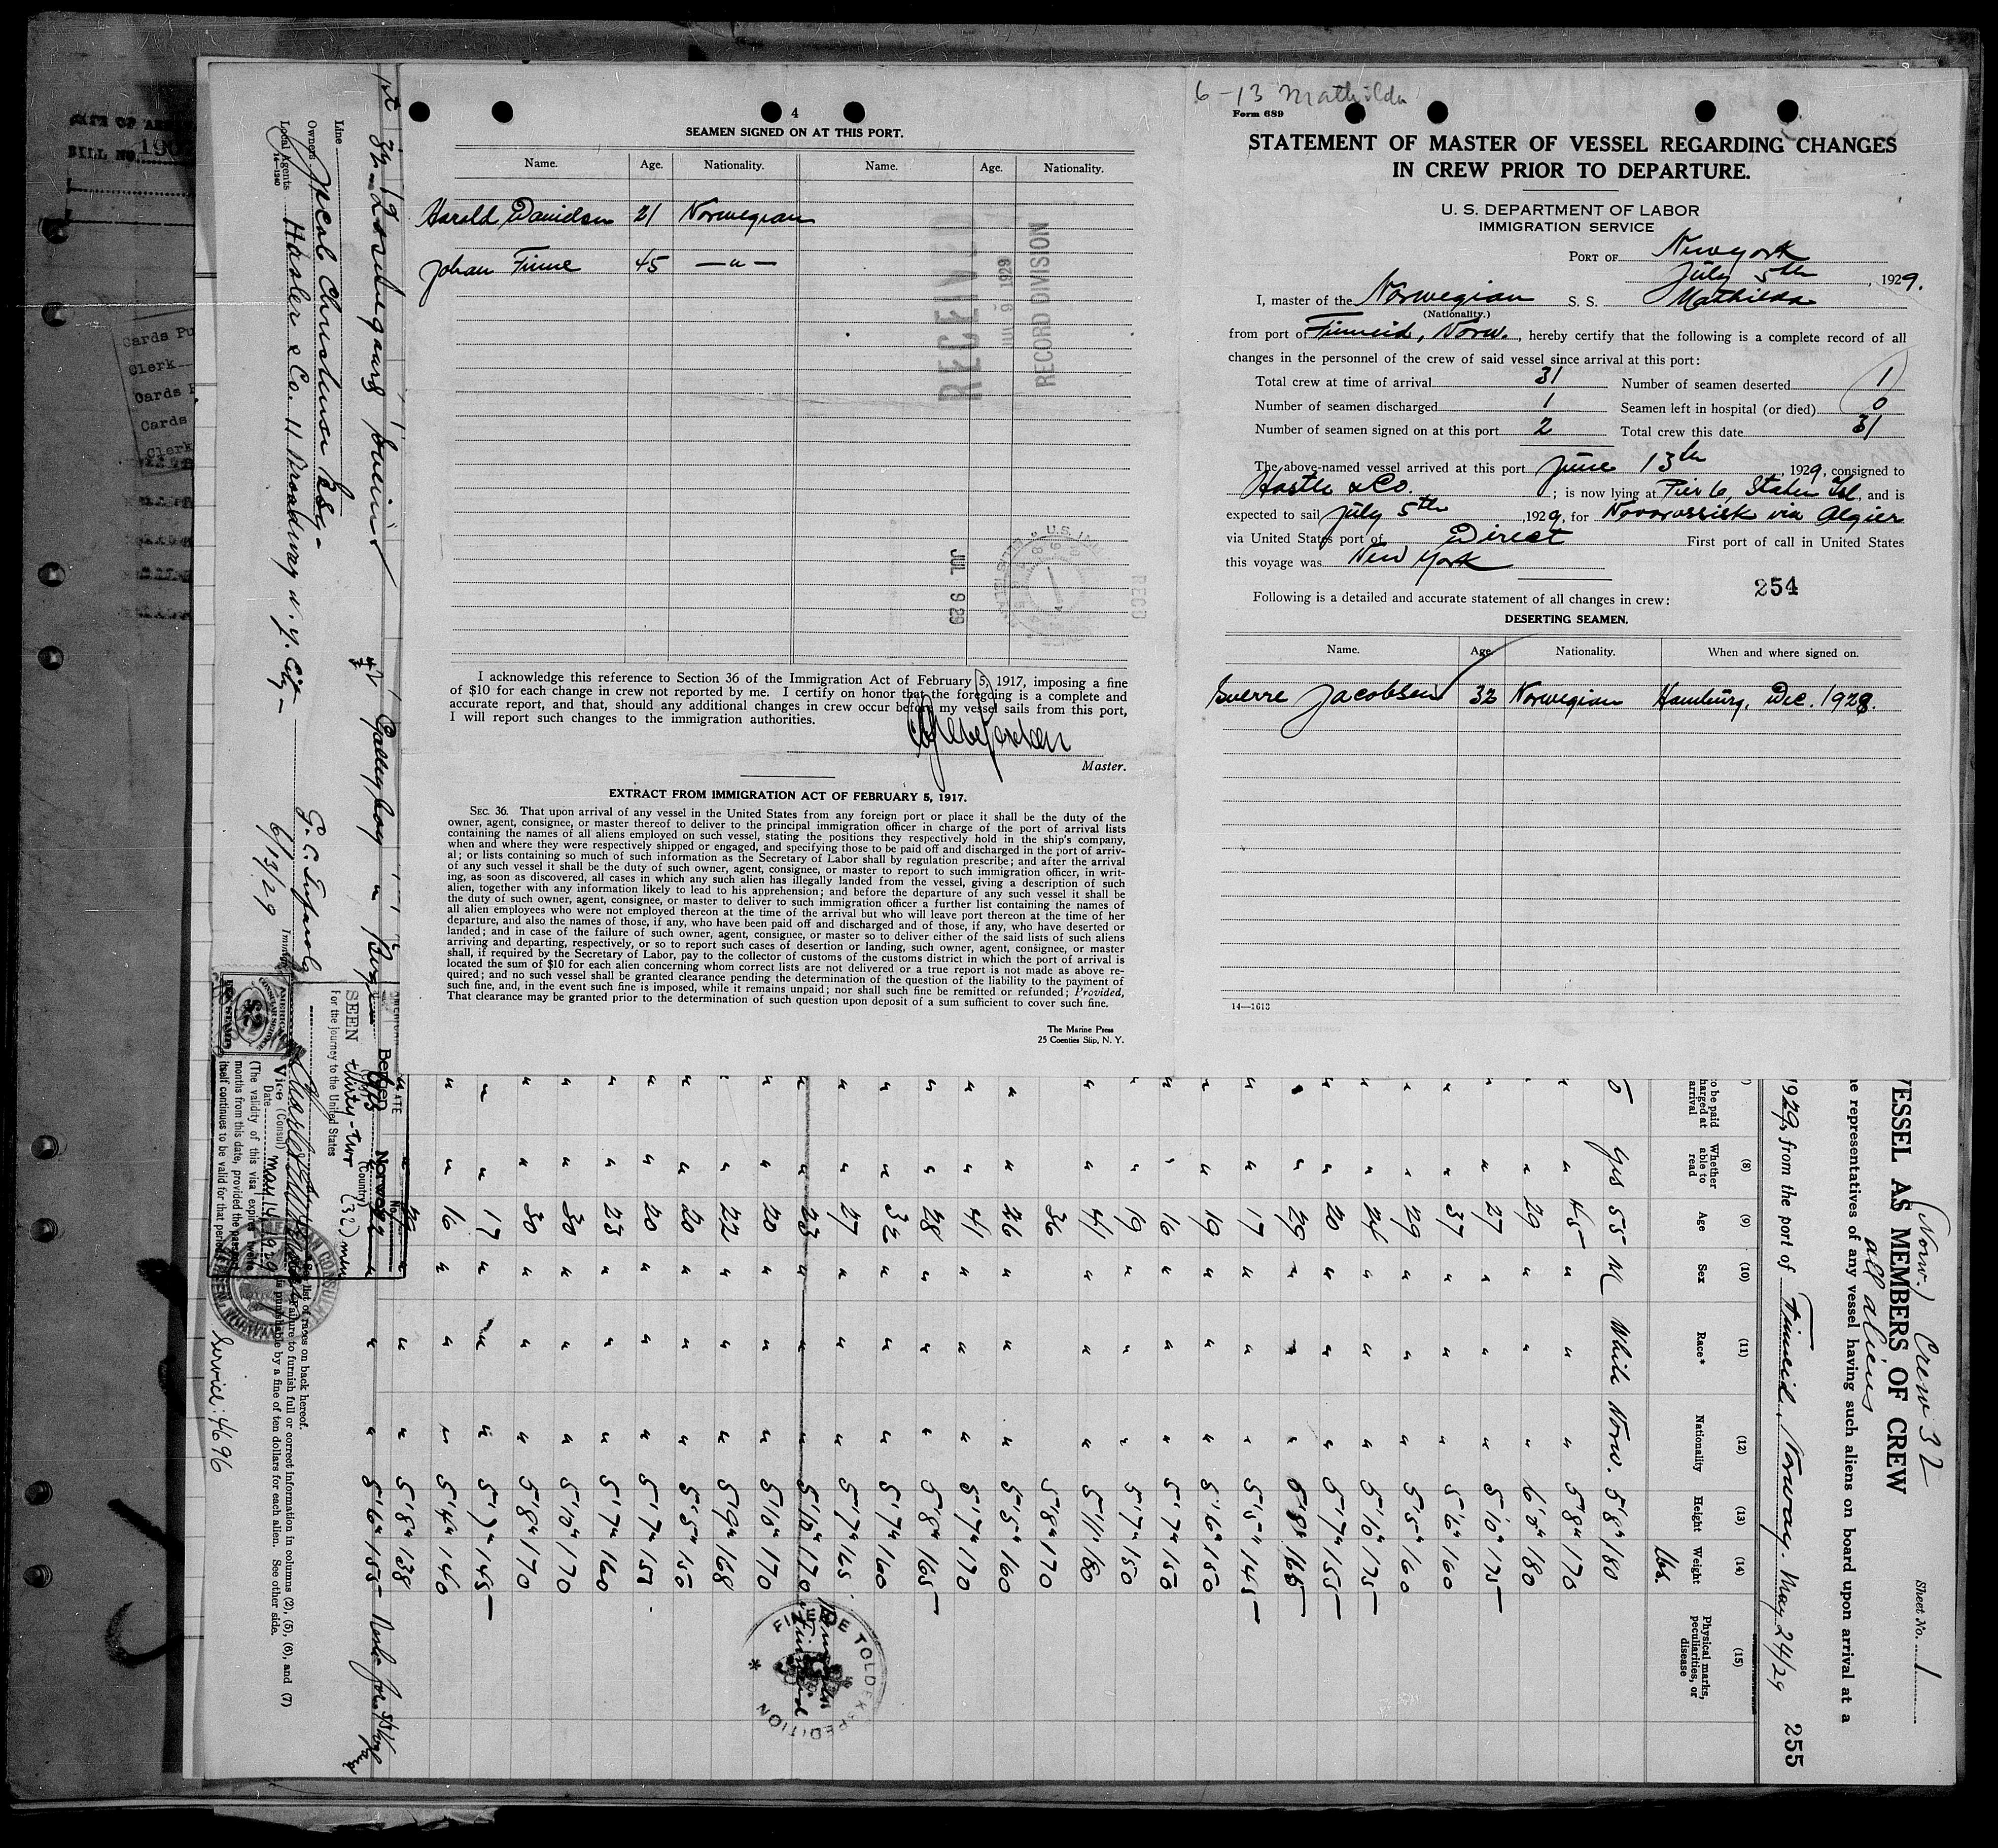 6-13 Mathilda
Form 689
STATEMENT OF MASTER OF VESSEL REGARDING CHANGES
IN CREW PRIOR TO DEPARTURE.
U. S. DEPARTMENT OF LABOR
IMMIGRATION SERVICE
PORT OF New york
July 5th, 1929.
I, master of the Norwegian S. S. Mathilda
(Nationality.)
from port of Finneid, Norw., hereby certify that the following is a complete record of all
changes in the personnel of the crew of said vessel since arrival at this port:
Total crew at time of arrival 31 Number of seamen deserted 1
Number of seamen discharged 1 Seamen left in hospital (or died) 0
Number of seamen signed on at this port 2 Total crew this date 31
The above-named vessel arrived at this port June 13th, 1929, consigned to
& Co.; is now lying at Pier 6, Staten Isl, and is
expected to sail July 5th, 1929, for Novorossisk via Algier
via United States port of Direct First port of call in United States
this voyage was New York
254
Following is a detailed and accurate statement of all changes in crew:
DESERTING SEAMEN.
Name. Age. Nationality. When and where signed on.
Sverre Jacobsen 32 Norwegian Hamburg, Dec. 1928.
14—1613
4
SEAMEN SIGNED ON AT THIS PORT.
Name. Age. Nationality. Name. Age. Nationality.
Harold Davidsen 21 Norwegian
Johan Finne 45 — " —
RECEIVED
JUL 9 1929
RECORD DIVISION
JUL 9 29
RECD
I acknowledge this reference to Section 36 of the Immigration Act of February 5, 1917, imposing a fine
of $10 for each change in crew not reported by me. I certify on honor that the foregoing is a complete and
accurate report, and that, should any additional changes in crew occur before my vessel sails from this port,
I will report such changes to the immigration authorities.
Master.
EXTRACT FROM IMMIGRATION ACT OF FEBRUARY 5, 1917.
SEC. 36. That upon arrival of any vessel in the United States from any foreign port or place it shall be the duty of the
owner, agent, consignee, or master thereof to deliver to the principal immigration officer in charge of the port of arrival lists
containing the names of all aliens employed on such vessel, stating the positions they respectively hold in the ship's company,
when and where they were respectively shipped or engaged, and specifying those to be paid off and discharged in the port of arriv-
al; or lists containing so much of such information as the Secretary of Labor shall by regulation prescribe; and after the arrival
of any such vessel it shall be the duty of such owner, agent, consignee, or master to report to such immigration officer, in writ-
ing, as soon as discovered, all cases in which any such alien has illegally landed from the vessel, giving a description of such
alien, together with any information likely to lead to his apprehension; and before the departure of any such vessel it shall be
the duty of such owner, agent, consignee, or master to deliver to such immigration officer a further list containing the names of
all alien employees who were not employed thereon at the time of the arrival but who will leave port thereon at the time of her
departure, and also the names of those, if any, who have been paid off and discharged and of those, if any, who have deserted or
landed; and in case of the failure of such owner, agent, consignee, or master so to deliver either of the said lists of such aliens
arriving and departing, respectively, or so to report such cases of desertion or landing, such owner, agent, consignee, or master
shall, if required by the Secretary of Labor, pay to the collector of customs of the customs district in which the port of arrival is
located the sum of $10 for each alien concerning whom correct lists are not delivered or a true report is not made as above re-
quired; and no such vessel shall be granted clearance pending the determination of the question of the liability to the payment of
such fine, and, in the event such fine is imposed, while it remains unpaid; nor shall such fine be remitted or refunded; Provided,
That clearance may be granted prior to the determination of such question upon deposit of a sum sufficient to cover such fine.
The Marine Press
25 Coenties Slip, N. Y.
Sheet No. 1
(Norw.) Crew 32
VESSEL AS MEMBERS OF CREW
all aliens
representatives of any vessel having such aliens on board upon arrival at a
1929, from the port of Finneid, Norway. May 24/29 255
to be paid
charged at
arrival
(8) Whether able to read
(9) Age
(10) Sex
(11) Race*
(12) Nationality
(13) Height
(14) Weight lbs.
(15) Physical marks, peculiarities, or disease
Yes 55 M White Norw. 5'8" 180
" 45 " " " 5'8" 170
" 29 " " " 6'0" 180
" 27 " " " 5'10" 175
" 37 " " " 5'6" 160
" 29 " " " 5'5" 160
" 24 " " " 5'10" 175
" 20 " " " 5'7" 155
" 29 " " " 5'8" 165
" 17 " " " 5'5" 145
" 19 " " " 5'6" 150
" 16 " " " 5'7" 150
" 19 " " " 5'7" 150
" 41 " " " 5'11" 180
36 5'8" 170
" 26 " " " 5'5" 160
" 41 " " " 5'7" 170
" 28 " " " 5'8" 165
" 32 " " " 5'7" 160
" 27 " " " 5'7" 165
" 23 " " " 5'10" 170
" 20 " " " 5'10" 170
" 22 " " " 5'9" 168
" 20 " " " 5'5" 150
" 20 " " " 5'7" 155
" 23 " " " 5'7" 160
" 30 " " " 5'10" 170
" 30 " " " 5'8" 170
" 17 " " " 5'7" 145
" 16 " " " 5'4" 140
" " " " 5'8" 138
" " " 5'6" 155
FINEIDE TOLDEKSPEDITION
Galley boy " Bergen
Bergen Norway
SEEN thirty-two (32) men
(Country)
For the journey to the United States
Vice (Consul)
Date May 14 1929
(The validity of this visa expires twelve
months from this date, provided the passport
itself continues to be valid for that period)
AMERICAN CONSULATE BERGEN, NORWAY
Service: 4696
See list of races on back hereof.
failure to furnish full or correct information in columns (2), (5), (6), and (7)
is punishable by a fine of ten dollars for each alien. See other side.
Line
Owners Jacob Christensen
Local Agents Hasler & Co. 11 Broadway N. Y. City
14—1240
6/13/29
BILL NO.
Cards Pu
Clerk
Cards
Cards
Clerk